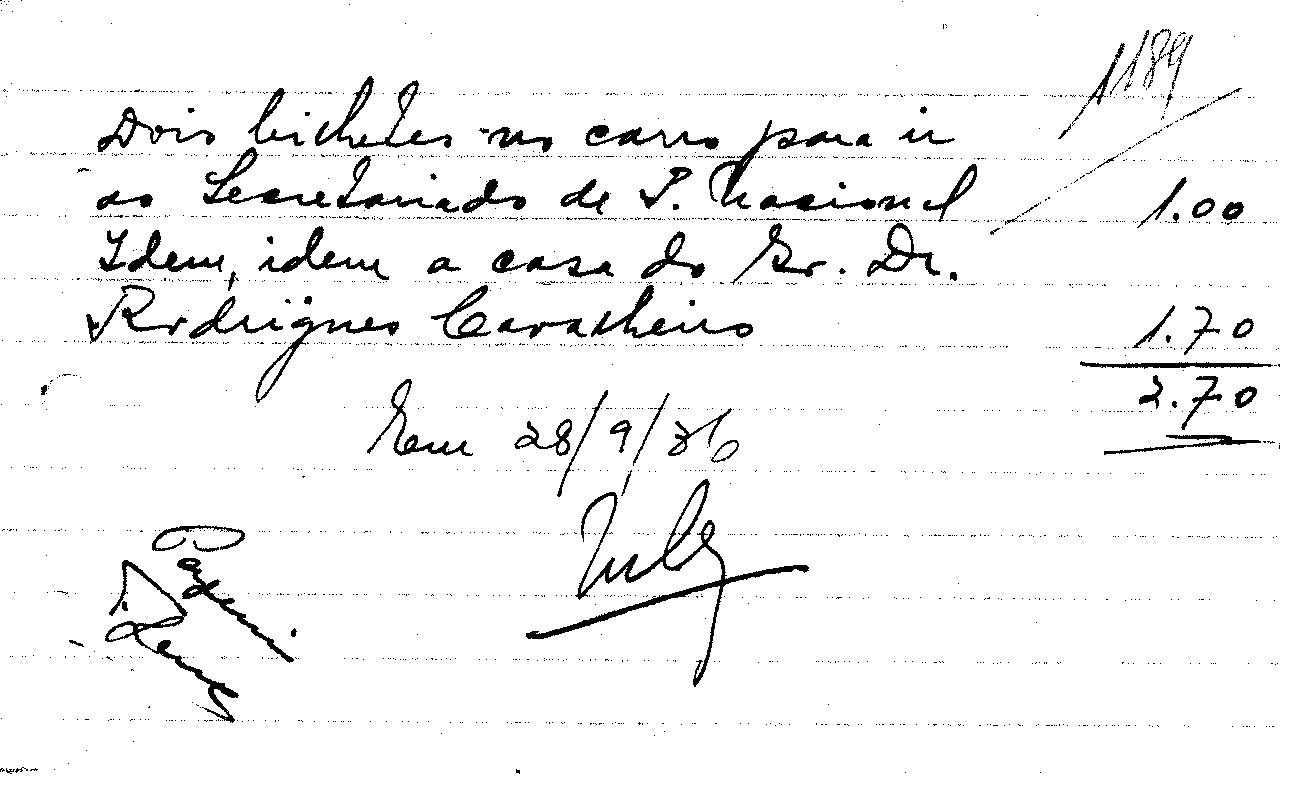 1189
Dois bichetes no carro para ir
ao Secretariado de P. Nacional 1.00
Idem, idem a casa do Sr. Dr.
Rodrigues Cavalheiro 1.70
2.70
Em 28/9/36